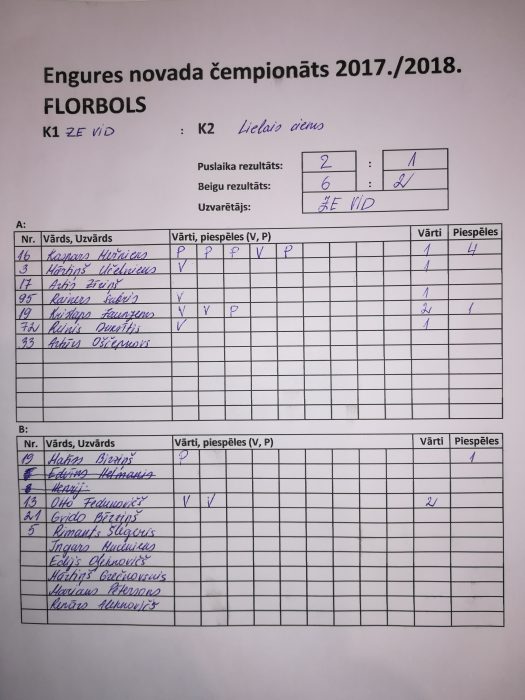 Engures novada čempionāts 2017./2018.
FLORBOLS
K1 ZE VID : K2 Lielais ciems
Puslaika rezultāts: 2 : 1
Beigu rezultāts: 6 : 2
Uzvarētājs: ZE VID
A:
Nr. Vārds, Uzvārds Vārti, piespēles (V, P) Vārti Piespēles
16 Kaspars P P P V P 1 4
3 Mārtiņš V 1
17 Artis
95 Rainers V 1
19 Kristaps V V P 2 1
72 Reinis V 1
93 Artūrs
B:
Nr. Vārds, Uzvārds Vārti, piespēles (V, P) Vārti Piespēles
19 Matīss Bērziņš P 1
Edvīns Helmanis
Henrij
13 Otto Fedunovičs V V 2
21 Gvido Bērziņš
5 Rimants Šligeris
Ingars
Edijs Oleknovičs
Mārtiņš
Marians Pētersons
Renārs Aleknovičs